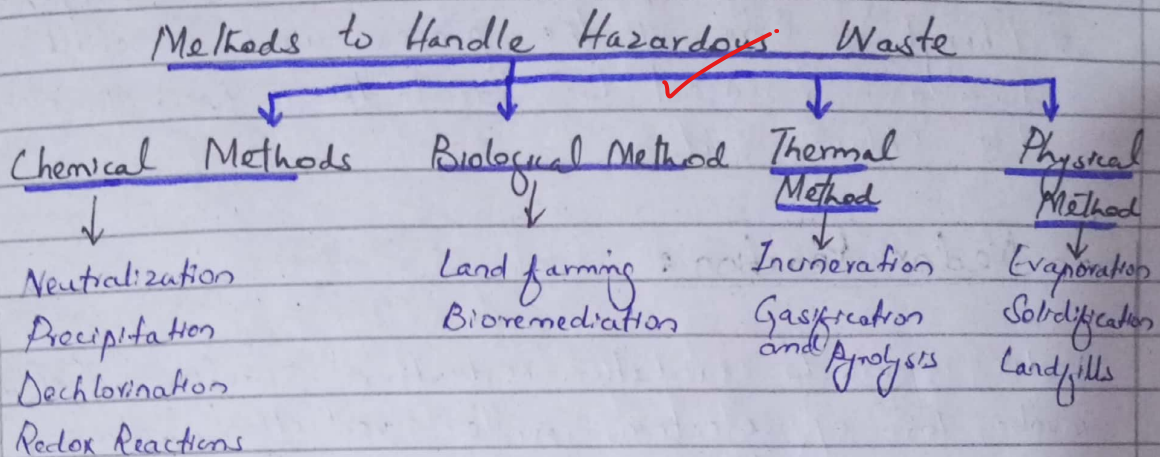 Methods to Handle Hazardous Waste
Chemical Methods
Neutralization
Precipitation
Dechlorination
Redox Reactions
Biological Method
Land farming
Bioremediation
Thermal
Method
Incineration
Gasification
and Pyrolysis
Physical
Method
Evaporation
Solidification
Landfills